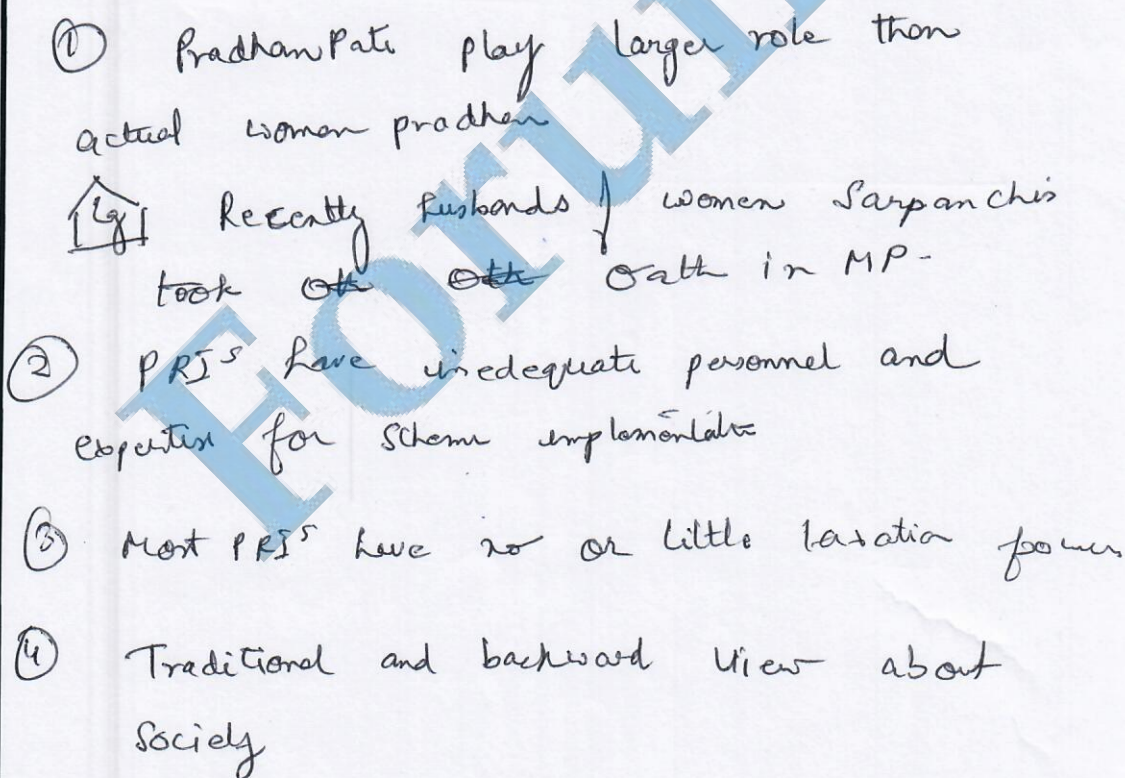 ① Pradhan Pati play larger role than
actual women pradhan
Eg Recently husbands of women Sarpanchs
took Oth Oth Oath in MP-
② PRIs have inadequate personnel and
expertise for scheme implementation
③ Most PRIs have no or little taxation powers
④ Traditional and backward view about
Society
Forum